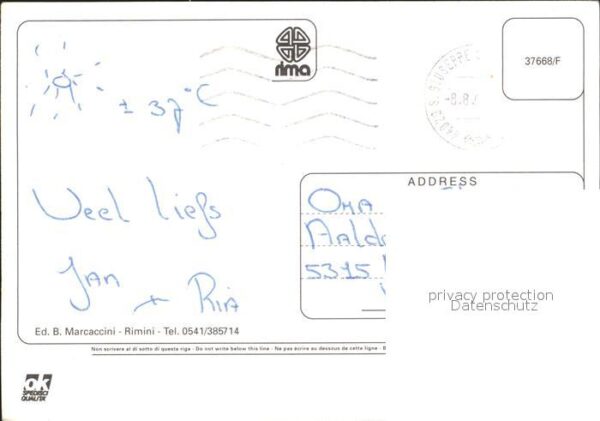 rima
37668/F
± 37°C
ADDRESS
Veel liefs
OMA
5315
Jan + Ria
privacy protection
Datenschutz
Ed. B. Marcaccini - Rimini - Tel. 0541/385714
Non scrivere al di sotto di questa riga - Do not write below this line - Ne pas écrire au dessous de cette ligne -
ok
SPEDISCI
QUALITA'